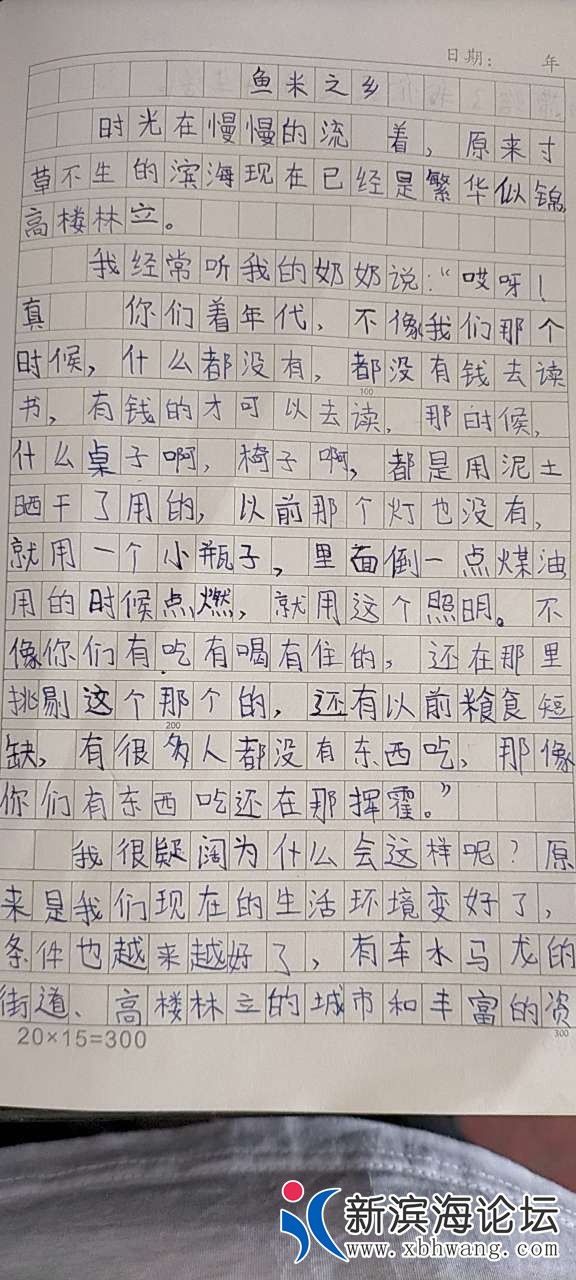 日期： 年
鱼米之乡
时光在慢慢的流 着，原来寸
草不生的滨海现在已经是繁华似锦
高楼林立。
我经常听我的奶奶说：“哎呀！
真 你们着年代、不像我们那个
时候，什么都没有，都没有钱去读
100
书，有钱的才可以去读，那时候，
什么桌子啊，椅子啊，都是用泥土
晒干了用的，以前那个灯也没有，
就用一个小瓶子，里面倒一点煤油
用的时候点燃，就用这个照明。不
像你们有吃有喝有住的，还在那里
挑剔这个那个的，还有以前粮食短
200
缺，有很多人都没有东西吃、那像
你们有东西吃还在那挥霍。”
我很疑阔为什么会这样呢？原
来是我们现在的生活环境变好了，
条件也越来越好了，有车水马龙的
街道、高楼林立的城市和丰富的资
20×15=300
300
新滨海论坛
www.xbhwang.com